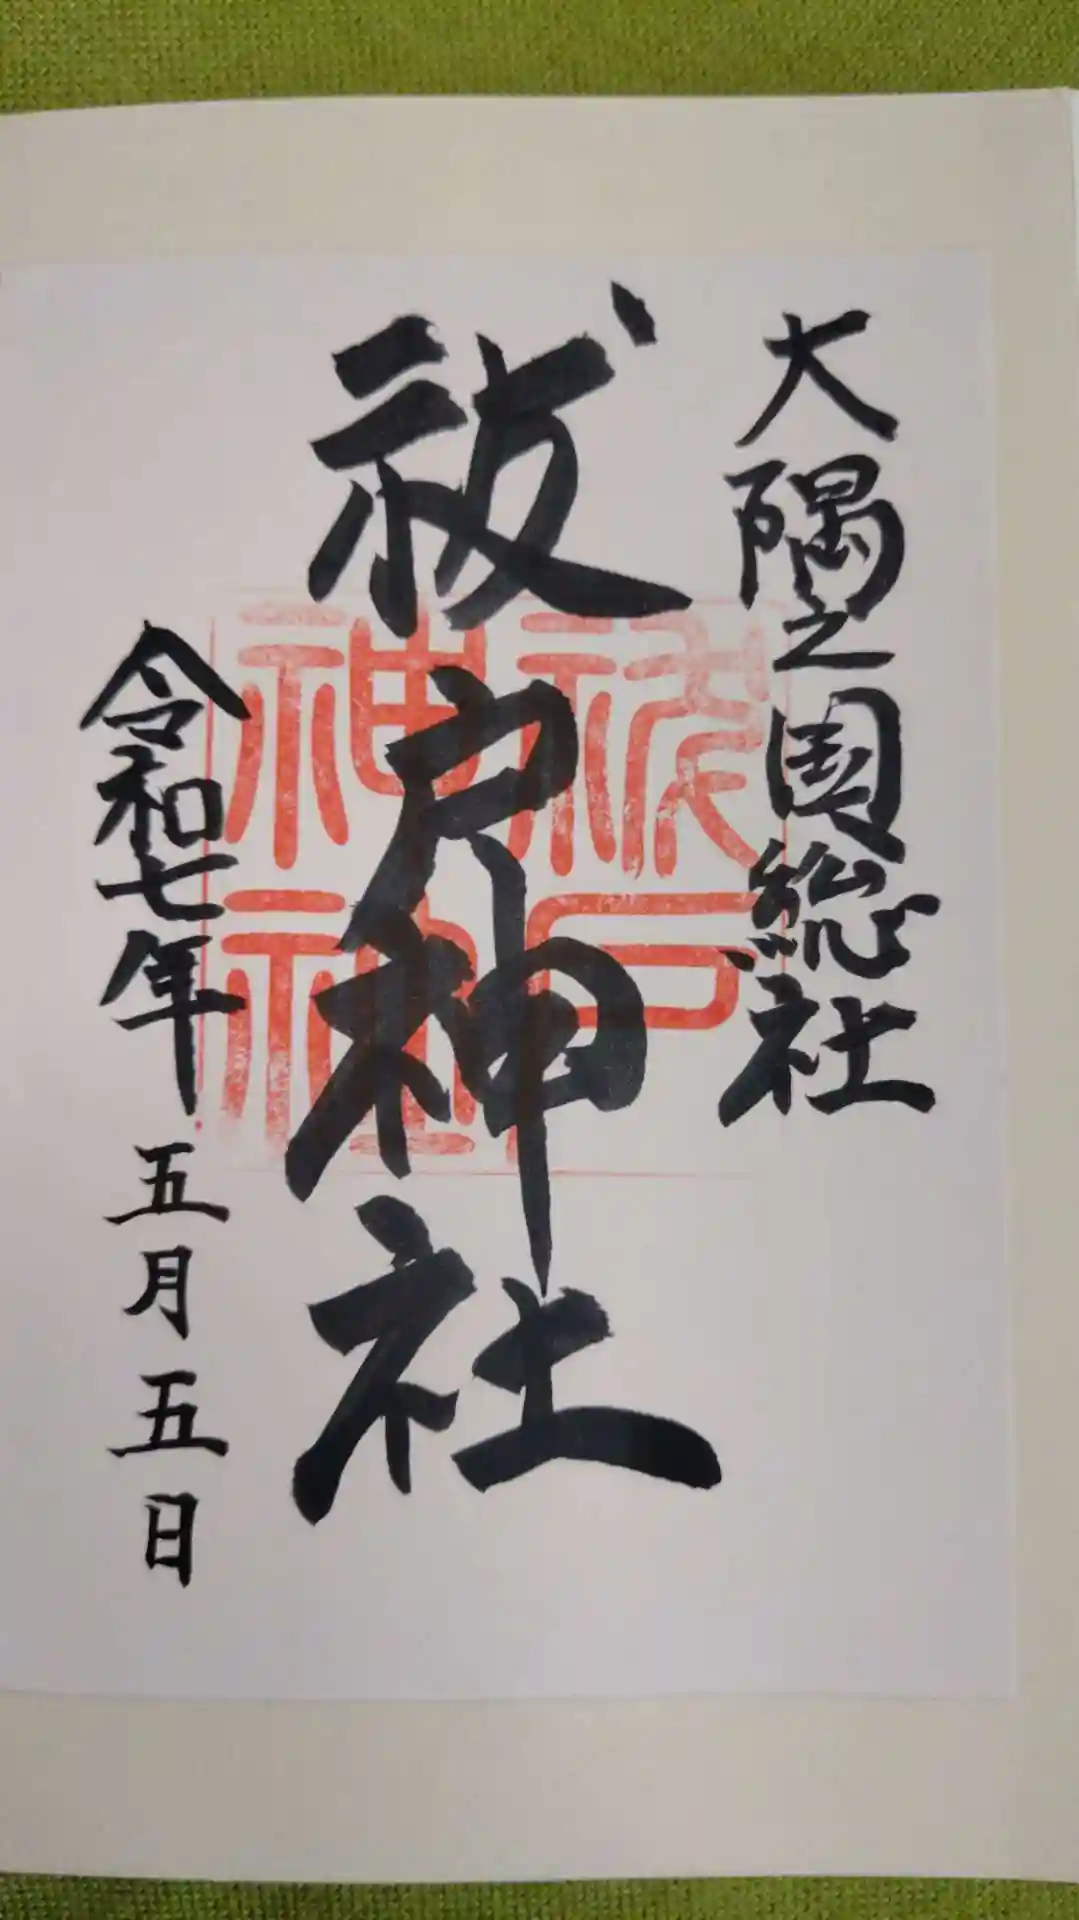 大隅之国総社
祓戸神社
令和七年五月五日
祓戸
神社